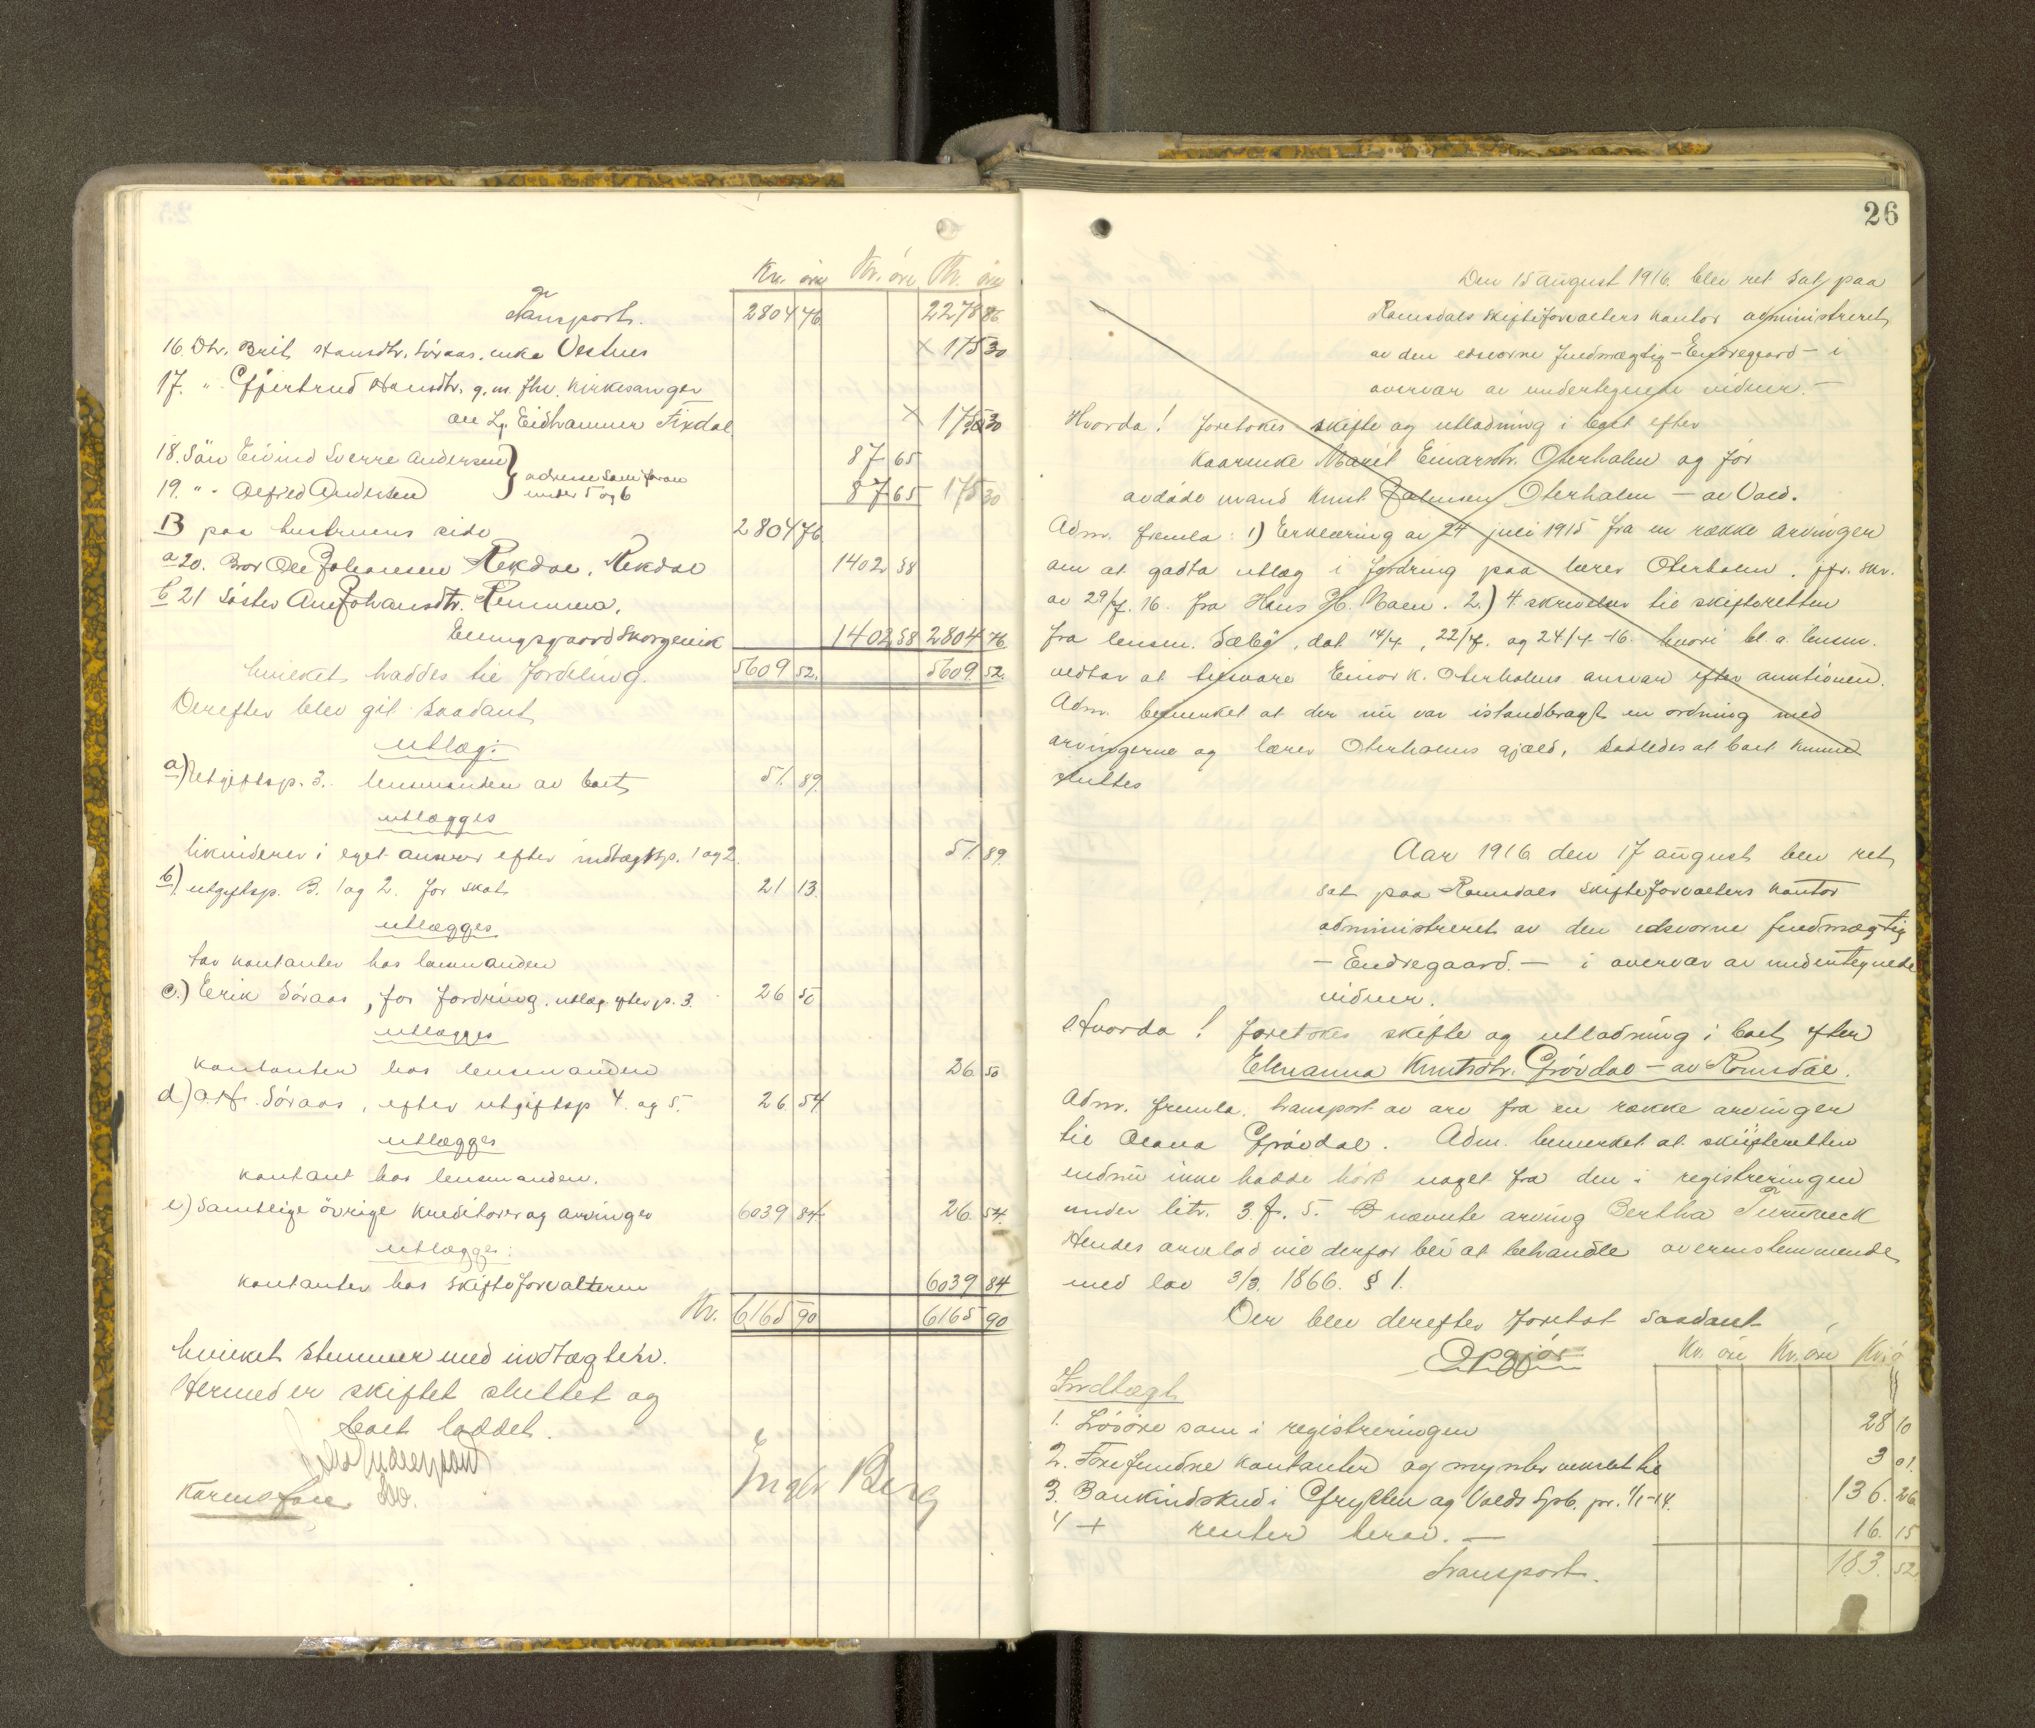 Kr. øre Kr. øre Kr. øre
Transport. 2804 76 2278 86
16. Dtr. Brit Hansdtr. Søraas, enke Vestnes × 175 30
17. " Gjertrud Hansdtr. g. m. fhv. kirkesanger
Ole L. Eidhammer Fixdal × 175 30
18. Søn Eivind Sverre Andersen } adresse som foran 87 65
19. " - Alfred Andersen under 5 og 6 87 65 175 30
B paa hustruens side 2804 76
a 20. Bror Ole Johansen Rekdal, Rekdal 1402 38
b 21 Søster Ane Johansdtr. Remmem,
Ellingsgaard Skorgenvik 1402 38 2804 76
hvilket haddes til fordeling. 5609 52. 5609 52.
Derefter blev git saadant
utlæg:
a) Utgiftsp. 3. lensmanden av boet 51. 89.
utlægges
likviderer i eget ansvar efter indtægtsp. 1 og 2. 51. 89.
b) utgiftsp. B. 1 og 2. for skat 21 13.
utlægges
tar kontanter hos lensmanden
c.) Erik Søraas, for fordring, utlæg efter p. 3. 26 50
utlægges
kontanter hos lensmanden 26. 50
d) O. H. Søraas, efter utgiftsp 4. og 5. 26. 54
utlægges
kontant hos lensmanden.
e) Samtlige övrige kreditorer og arvinger 6039 84 26. 54.
utlægges:
kontanter hos skifteforvalteren 6039 84
Kr. 6165 90 6165 90
hvilket stemmer med indtægten.
Hermed er skiftet sluttet og
boet loddet.
Endregaard
Karen Inger Berg
cst.

26
Den 15 august 1916 blev ret sat paa
Romsdals skifteforvalters kontor administreret
av den edsvorne fuldmægtig - Endregaard - i
overvær av undertegnede vidner. -
Hvorda! foretokes skifte og utlodning i boet efter
kaarenke Marit Einarsdtr. Oterhalm og før
avdøde mand Knut Oterhalm - av Vold.
Adm. fremla: 1) Erklæring av 24 juli 1915 fra en række arvinger
om at godta utlæg i fordring paa lærer Oterholm. jfr. skr.
av 29/7. 16. fra Hans H. Naen. 2.) 4 skrivelser til skifteretten
fra lensm. Sæbø, dat 14/7, 22/7. og 24/7 -16. hvori bl. a. lensm.
vedtar at tilsvare Einar K. Oterholms ansvar efter auktionen.
Adm. bemerket at der nu var istandbragt en ordning med
arvingerne og lærer Oterholms gjæld, saaledes at boet kunne
sluttes
Aar 1916 den 17 august blev ret
sat paa Romsdals skifteforvalters kontor
administreret av den edsvorne fuldmægtig
- Endregaard. - i overvær av undertegnede
vidner.
Hvorda! foretokes skifte og utlodning i boet efter
Elenanna Knutsdtr. Grövdal - av Romsdal.
Adm. fremla. transport av arv fra en række arvinger
til Olana Grövdal. Adm. bemerket at skifteretten
endnu ikke hadde hört noget fra den i registreringen
under litr. 3. f. 5. nævnte arving Bertha Turnveck
Hendes arvelod vil derfor bli at behandle overensstemmende
med lov 3/3. 1866. § 1.
Der blev derefter foretat saadant
Opgjør Kr. øre Kr. øre Kr. ø
Indtægt
1. Løsøre som i registreringen 28 10
2. Forefundne kontanter og mynter 3 01.
3. Bankindskud i Grytten og Volds Spb. pr. 1/1-14. 136. 26
4 + renter herav. - 16. 15
Transport. 183. 52